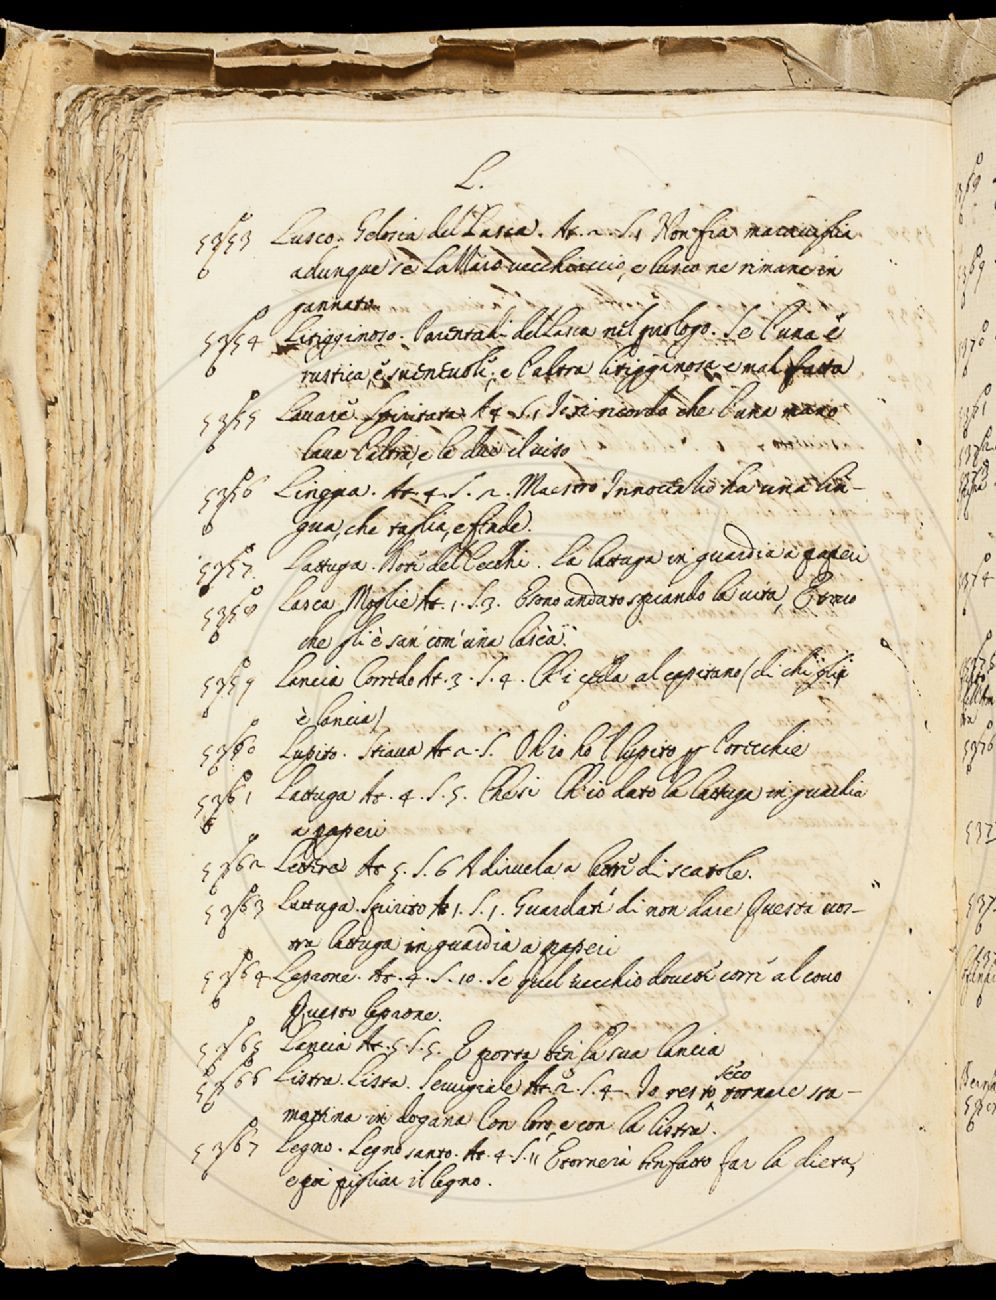 L.
5353 Lusco. Gelosia del Lasca. At. 2. S. 1 Non fia maraviglia
adunque se Lazzaro vecchiaccio, e lusco ne rimane in
gannato.
5354 Litigginoso. Parentadi del Lasca nel prologo. Se l'una è
rustica, e svenevole, e l'altra litigginosa e mal fatta
5355 Lavare Spiritata At 4 S. 1 Ti si ricorda che l'una mano
lava l'altra, e le due il viso
5356 Lingua. At. 4. S. 2. Maestro Innocenzio ha una lin-
gua, che taglia, e fende.
5357 Lattuga. Doti del Cecchi. La lattuga in guardia a paperi
5358 Lasca Moglie At. 1. S. 3. Esono andato spiando la vita,
che gli è san' com' una lasca.
5359 Lancia Corredo At. 3. S. 4. Ch'i ceda al capitano (di chi gli
è lancia)
5360 Lupito. Stiava At 2. S. Ohio ho 'l lupito gli orecchie
5361 Lattuga At. 4. S. 5. Che si Ch'io dato la lattuga in guardia
a paperi
5362 Lettere At 5. S. 6 A dirvela a lettere di scatole.
5363 Lattuga. Spirito At 1. S. 1. Guardate di non dare Questa vos-
tra lattuga in guardia a paperi
5364 Leprone. At. 4. S. 10. Se quel vecchio dovesse corre al covo
Questo leprone.
5365 Lancia At. 5. S. 5. E porta ben la sua lancia
5366 Listra. Lista. Servigiale At. 2. S. 4 Io resto seco tornare sta-
mattina in dogana Con loro, e con la listra.
5367 Legno. Legno santo. At. 4 S. 11 E tornerà far la dieta,
e poi pigliar il legno.